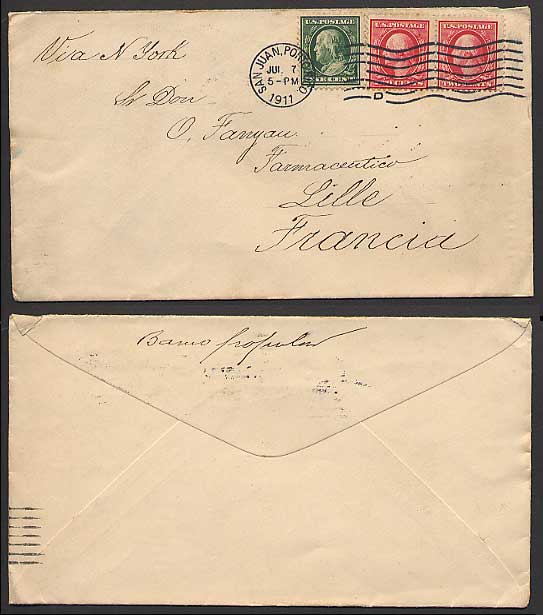 Via N York
U.S. POSTAGE
U.S. POSTAGE
U.S. POSTAGE
SAN JUAN, PORTO RICO
JUL 7
5-PM
1911
D
TWO CENTS
Sr Don
O. Fanyau
Farmaceutico
Lille
Francia
Banco popular